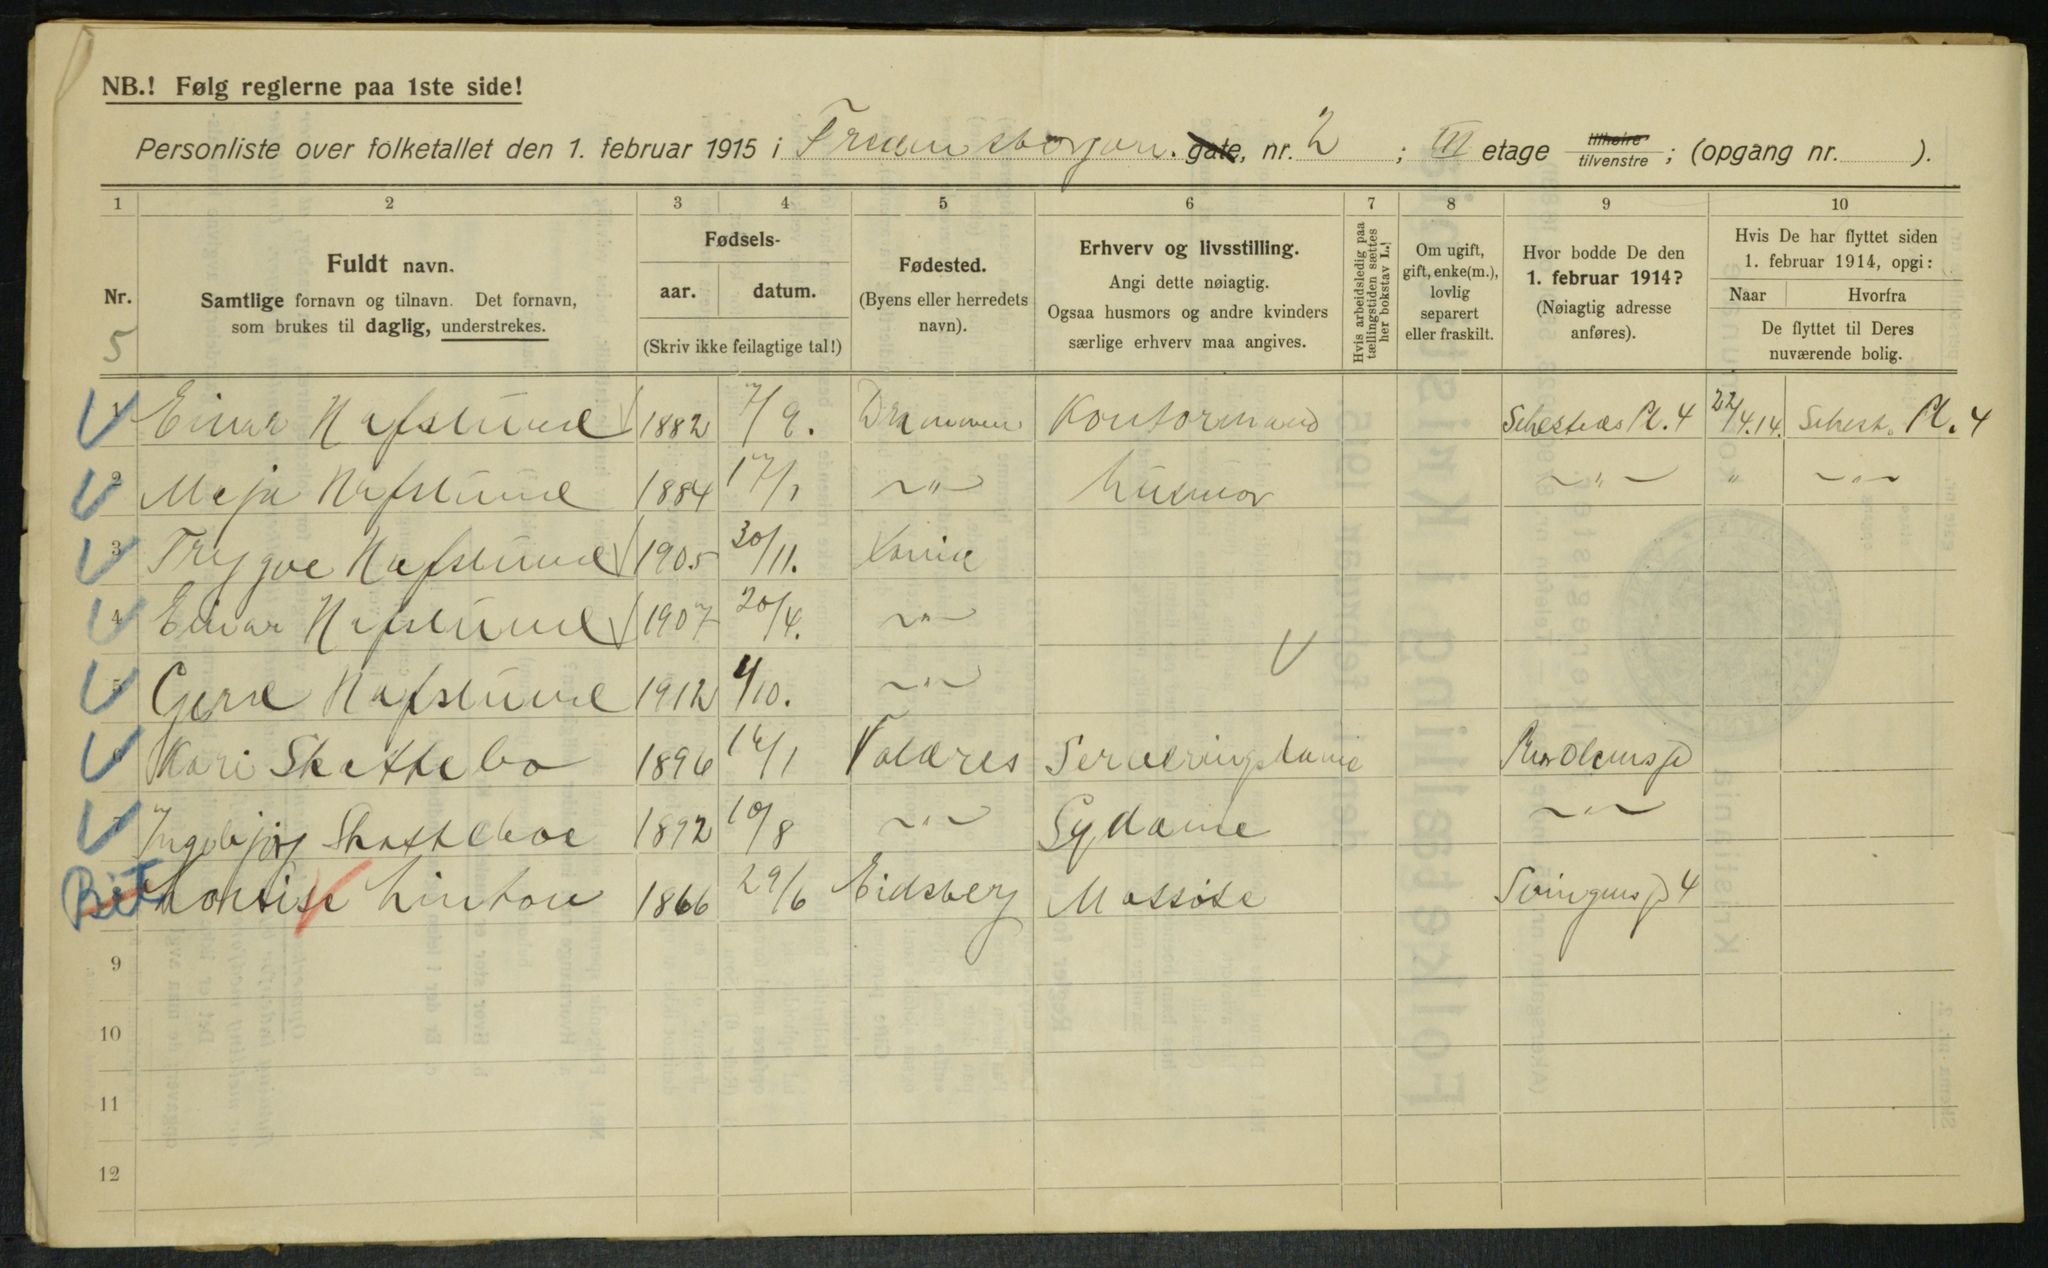 NB.! Følg reglerne paa 1ste side!
Personliste over folketallet den 1. februar 1915 i gate, nr. 2 ; III etage tilhøire tilvenstre ; (opgang nr. ).
1 2 3 4 5 6 7 8 9 10
Nr.
5
Fuldt navn.
Samtlige fornavn og tilnavn. Det fornavn,
som brukes til daglig, understrekes.
Fødsels-
aar. datum.
(Skriv ikke feilagtige tal!)
Fødested.
(Byens eller herredets
navn).
Erhverv og livsstilling.
Angi dette nøiagtig.
Ogsaa husmors og andre kvinders
særlige erhverv maa angives.
Hvis arbeidsledig paa
tællingstiden sættes
her bokstav L.!
Om ugift,
gift, enke(m.),
lovlig
separert
eller fraskilt.
Hvor bodde De den
1. februar 1914?
(Nøiagtig adresse
anføres).
Hvis De har flyttet siden
1. februar 1914, opgi:
Naar Hvorfra
De flyttet til Deres
nuværende bolig.
1 Einar Hafslund 1882 7/9. Drammen Kontormand Sehesteds Pl. 4 22/4.14. Sehest. Pl. 4
2 Maja Hafslund 1884 17/1 ~"~ husmor ~"~ " ~"~
3 Trygve Hafslund 1905 30/11. Kania
4 Einar Hafslund 1907 20/4. ~"~
5 Gerd Hafslund 1912 4/10. ~"~
6 Kari Skattebo 1896 Valdres Serveringsdame
7 Ingebjørg Skatteboe 1892 10/8 ~"~ Sydame ~"~
Bet Lovise 1866 29/6 Eidsberg Massøse 4
9
10
11
12